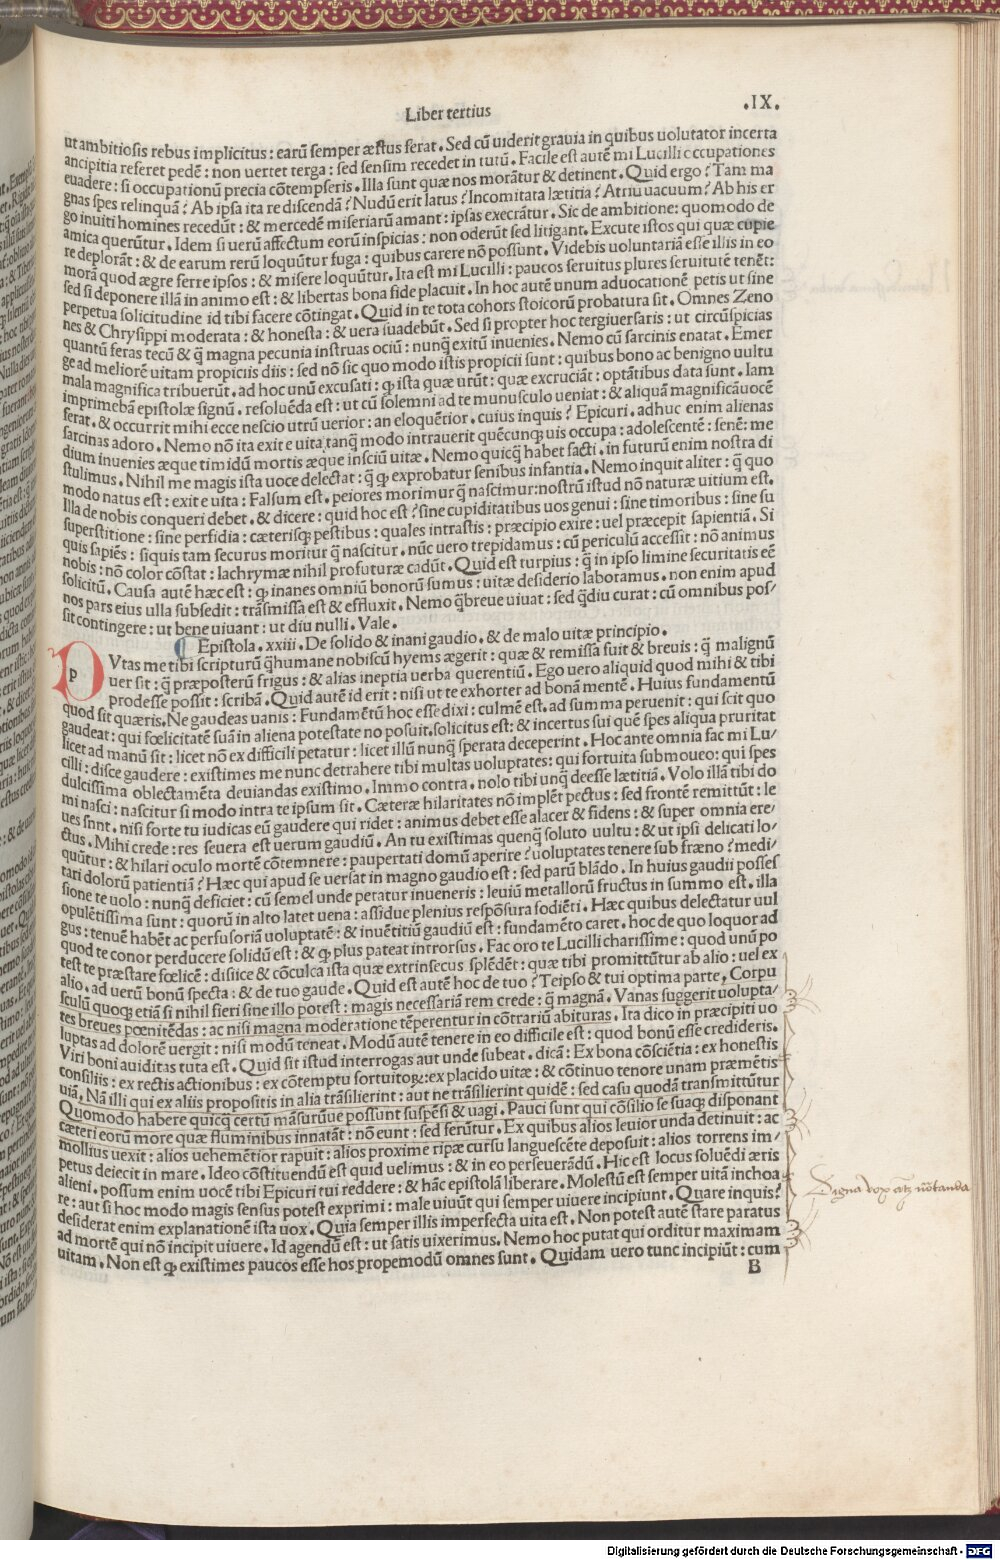 Liber tertius
.IX.
ut ambitiosis rebus implicitus : earũ semper æstus ferat. Sed cũ uiderit grauia in quibus uolutator incerta
ancipitia referet pedẽ : non uertet terga : sed sensim recedet in tutũ. Facile est autẽ mi Lucilli occupationes
euadere : si occupationũ precia cõtempseris. Illa sunt quæ nos morãtur & detinent. Quid ergo? Tam ma
gnas spes relinquã? Ab ipsa ita re discendã? Nudũ erit latus? Incomitata lætitia? Atriũ uacuum? Ab his er
go inuiti homines recedũt : & mercedẽ miseriarũ amant : ipsas execrãtur. Sic de ambitione: quomodo de
amica querũtur. Idem si uerũ affectum eorũ inspicias : non oderũt sed litigant. Excute istos qui quæ cupie
re deplorãt : & de earum rerũ loquũtur fuga : quibus carere nõ possunt. Videbis uoluntariã esse illis in eo
morã quod ægre ferre ipsos : & misere loquũtur. Ita est mi Lucilli : paucos seruitus plures seruitutẽ tenẽt:
sed si deponere illã in animo est : & libertas bona fide placuit. In hoc autẽ unum aduocationẽ petis ut sine
perpetua solicitudine id tibi facere cõtingat. Quid in te tota cohors stoicorũ probatura sit. Omnes Zeno
nes & Chrysippi moderata : & honesta : & uera suadebũt. Sed si propter hoc tergiuersaris : ut circũspicias
quantũ feras tecũ & q̃ magna pecunia instruas ociũ : nunq̃ exitũ inuenies. Nemo cũ sarcinis enatat. Emer
ge ad meliorẽ uitam propiciis diis : sed nõ sic quo modo istis propicii sunt : quibus bono ac benigno uultu
mala magnifica tribuerũt. ad hoc unũ excusati : ꝙ ista quæ urũt : quæ excruciãt : optãtibus data sunt. Iam
imprimebã epistolæ signũ . resoluẽda est : ut cũ solemni ad te munusculo ueniat : & aliquã magnificã uocẽ
ferat. & occurrit mihi ecce nescio utrũ uerior : an eloquẽtior. cuius inquis? Epicuri. adhuc enim alienas
sarcinas adoro. Nemo nõ ita exit e uita tanq̃ modo intrauerit quẽcunqꝫ uis occupa : adolescentẽ : senẽ: me
dium inuenies æque timidũ mortis æque insciũ uitæ. Nemo quicq̃ habet facti. in futurũ enim nostra di
stulimus. Nihil me magis ista uoce delectat : q̃ ꝙ exprobatur senibus infantia. Nemo inquit aliter : q̃ quo
modo natus est : exit e uita : Falsum est. peiores morimur q̃ nascimur:nostrũ istud nõ naturæ uitium est.
Illa de nobis conqueri debet. & dicere : quid hoc est? sine cupiditatibus uos genui : sine timoribus : sine su
superstitione : sine perfidia : cæterisqꝫ pestibus : quales intrastis : præcipio exire : uel præcepit sapientiã. Si
quis sapiẽs : siquis tam securus moritur q̃ nascitur. nũc uero trepidamus : cũ periculũ accessit : nõ animus
nobis : nõ color cõstat : lachrymæ nihil profuturæ cadũt. Quid est turpius : q̃ in ipso limine securitatis eẽ
solicitũ. Causa autẽ hæc est : ꝙ inanes omniũ bonorũ sumus : uitæ desiderio laboramus. non enim apud
nos pars eius ulla subsedit : trãsmissa est & effluxit. Nemo q̃breue uiuat : sed q̃diu curat : cũ omnibus pos/
sit contingere : ut bene uiuant : ut diu nulli. Vale.
Epistola. xxiii. De solido & inani gaudio. & de malo uitæ principio.
p Vtas me tibi scripturũ q̃humane nobiscũ hyems ægerit : quæ & remissa fuit & breuis : q̃ malignũ
uer sit : q̃ præposterũ frigus : & alias ineptia uerba querentiũ. Ego uero aliquid quod mihi & tibi
prodesse possit : scribã. Quid autẽ id erit : nisi ut te exhorter ad bonã mentẽ. Huius fundamentũ
quod sit quæris. Ne gaudeas uanis : Fundamẽtũ hoc esse dixi : culmẽ est. ad summa peruenit : qui scit quo
gaudeat : qui fœlicitatẽ suã in aliena potestate no posuit.solicitus est: & incertus sui quẽ spes aliqua pruritat
licet ad manũ sit : licet nõ ex difficili petatur : licet illũ nunq̃ sperata deceperint. Hoc ante omnia fac mi Lu/
cilli : disce gaudere : existimes me nunc detrahere tibi multas uoluptates: qui fortuita submoueo: qui spes
dulcissima oblectamẽta deuiandas existimo. Immo contra. nolo tibi unq̃ deesse lætitiã. Volo illã tibi do
mi nasci : nascitur si modo intra te ipsum sit. Cæteræ hilaritates nõ implẽt pectus : sed frontẽ remittũt : le
ues snnt. nisi forte tu iudicas eũ gaudere qui ridet : animus debet esse alacer & fidens : & super omnia ere/
ctus. Mihi crede : res seuera est uerum gaudiũ. An tu existimas quenq̃ soluto uultu : & ut ipsi delicati lo/
quũtur : & hilari oculo mortẽ cõtemnere : paupertati domũ aperire? uoluptates tenere sub fræno? medi/
tari dolorũ patientiã? Hæc qui apud se uersat in magno gaudio est : sed parũ blãdo. In huius gaudii posses
sione te uolo : nunq̃ deficiet : cũ semel unde petatur inueneris : leuiũ metallorũ fructus in summo est. illa
opulẽtissima sunt : quorũ in alto latet uena : assidue plenius respõsura sodiẽti. Hæc quibus delectatur uul
gus : tenuẽ habẽt ac perfusoriã uoluptatẽ : & inuẽtitiũ gaudiũ est : fundamẽto caret. hoc de quo loquor ad
quod te conor perducere solidũ est : & ꝙ plus pateat introrsus. Fac oro te Lucilli charissime : quod unũ po
test te præstare fœlicẽ : disiice & cõculca ista quæ extrinsecus splẽdẽt : quæ tibi promittũtur ab alio : uel ex
alio. ad uerũ bonũ specta : & de tuo gaude. Quid est autẽ hoc de tuo? Teipso & tui optima parte. Corpu
sculũ quoqꝫ etiã si nihil fieri sine illo potest : magis necessariã rem crede : q̃ magnã. Vanas suggerit uolupta/
tes breues pœnitẽdas : ac nisi magna moderatione tẽperentur in cõtrariũ abituras. Ita dico in præcipiti uo
luptas ad dolorẽ uergit : nisi modũ teneat. Modũ autẽ tenere in eo difficile est : quod bonũ esse credideris.
Viri boni auiditas tuta est. Quid sit istud interrogas aut unde subeat. dicã : Ex bona cõsciẽtia : ex honestis
consiliis : ex rectis actionibus : ex cõtemptu fortuitoꝝ:ex placido uitæ : & cõtinuo tenore unam præmẽtis
uiã. Nã illi qui ex aliis propositis in alia trãsilierint : aut ne trãsilierint quidẽ : sed casu quodã transmittũtur
Quomodo habere quicq̃ certũ mãsurũue possunt suspẽsi & uagi. Pauci sunt qui cõsilio se suaqꝫ disponant
cæteri eorũ more quæ fluminibus innatãt : nõ eunt : sed ferũtur. Ex quibus alios leuior unda detinuit : ac
mollius uexit : alios uehemẽtior rapuit : alios proxime ripæ cursu languescẽte deposuit : alios torrens im/
petus deiecit in mare. Ideo cõstituendũ est quid uelimus : & in eo perseuerãdũ. Hic est locus soluẽdi æris
alieni. possum enim uocẽ tibi Epicuri tui reddere : & hãc epistolã liberare. Molestũ est semper uitã inchoa
re : aut si hoc modo magis sensus potest exprimi : male uiuũt qui semper uiuere incipiunt. Quare inquis?
desiderat enim explanationẽ ista uox. Quia semper illis imperfecta uita est. Non potest autẽ stare paratus
ad mortẽ qui nõ incipit uiuere. Id agendũ est : ut satis uixerimus. Nemo hoc putat qui orditur maximam
uitam. Non est ꝙ existimes paucos esse hos propemodũ omnes sunt. Quidam uero tunc incipiũt : cum
B
Digitalisierung gefördert durch die Deutsche Forschungsgemeinschaft - DFG